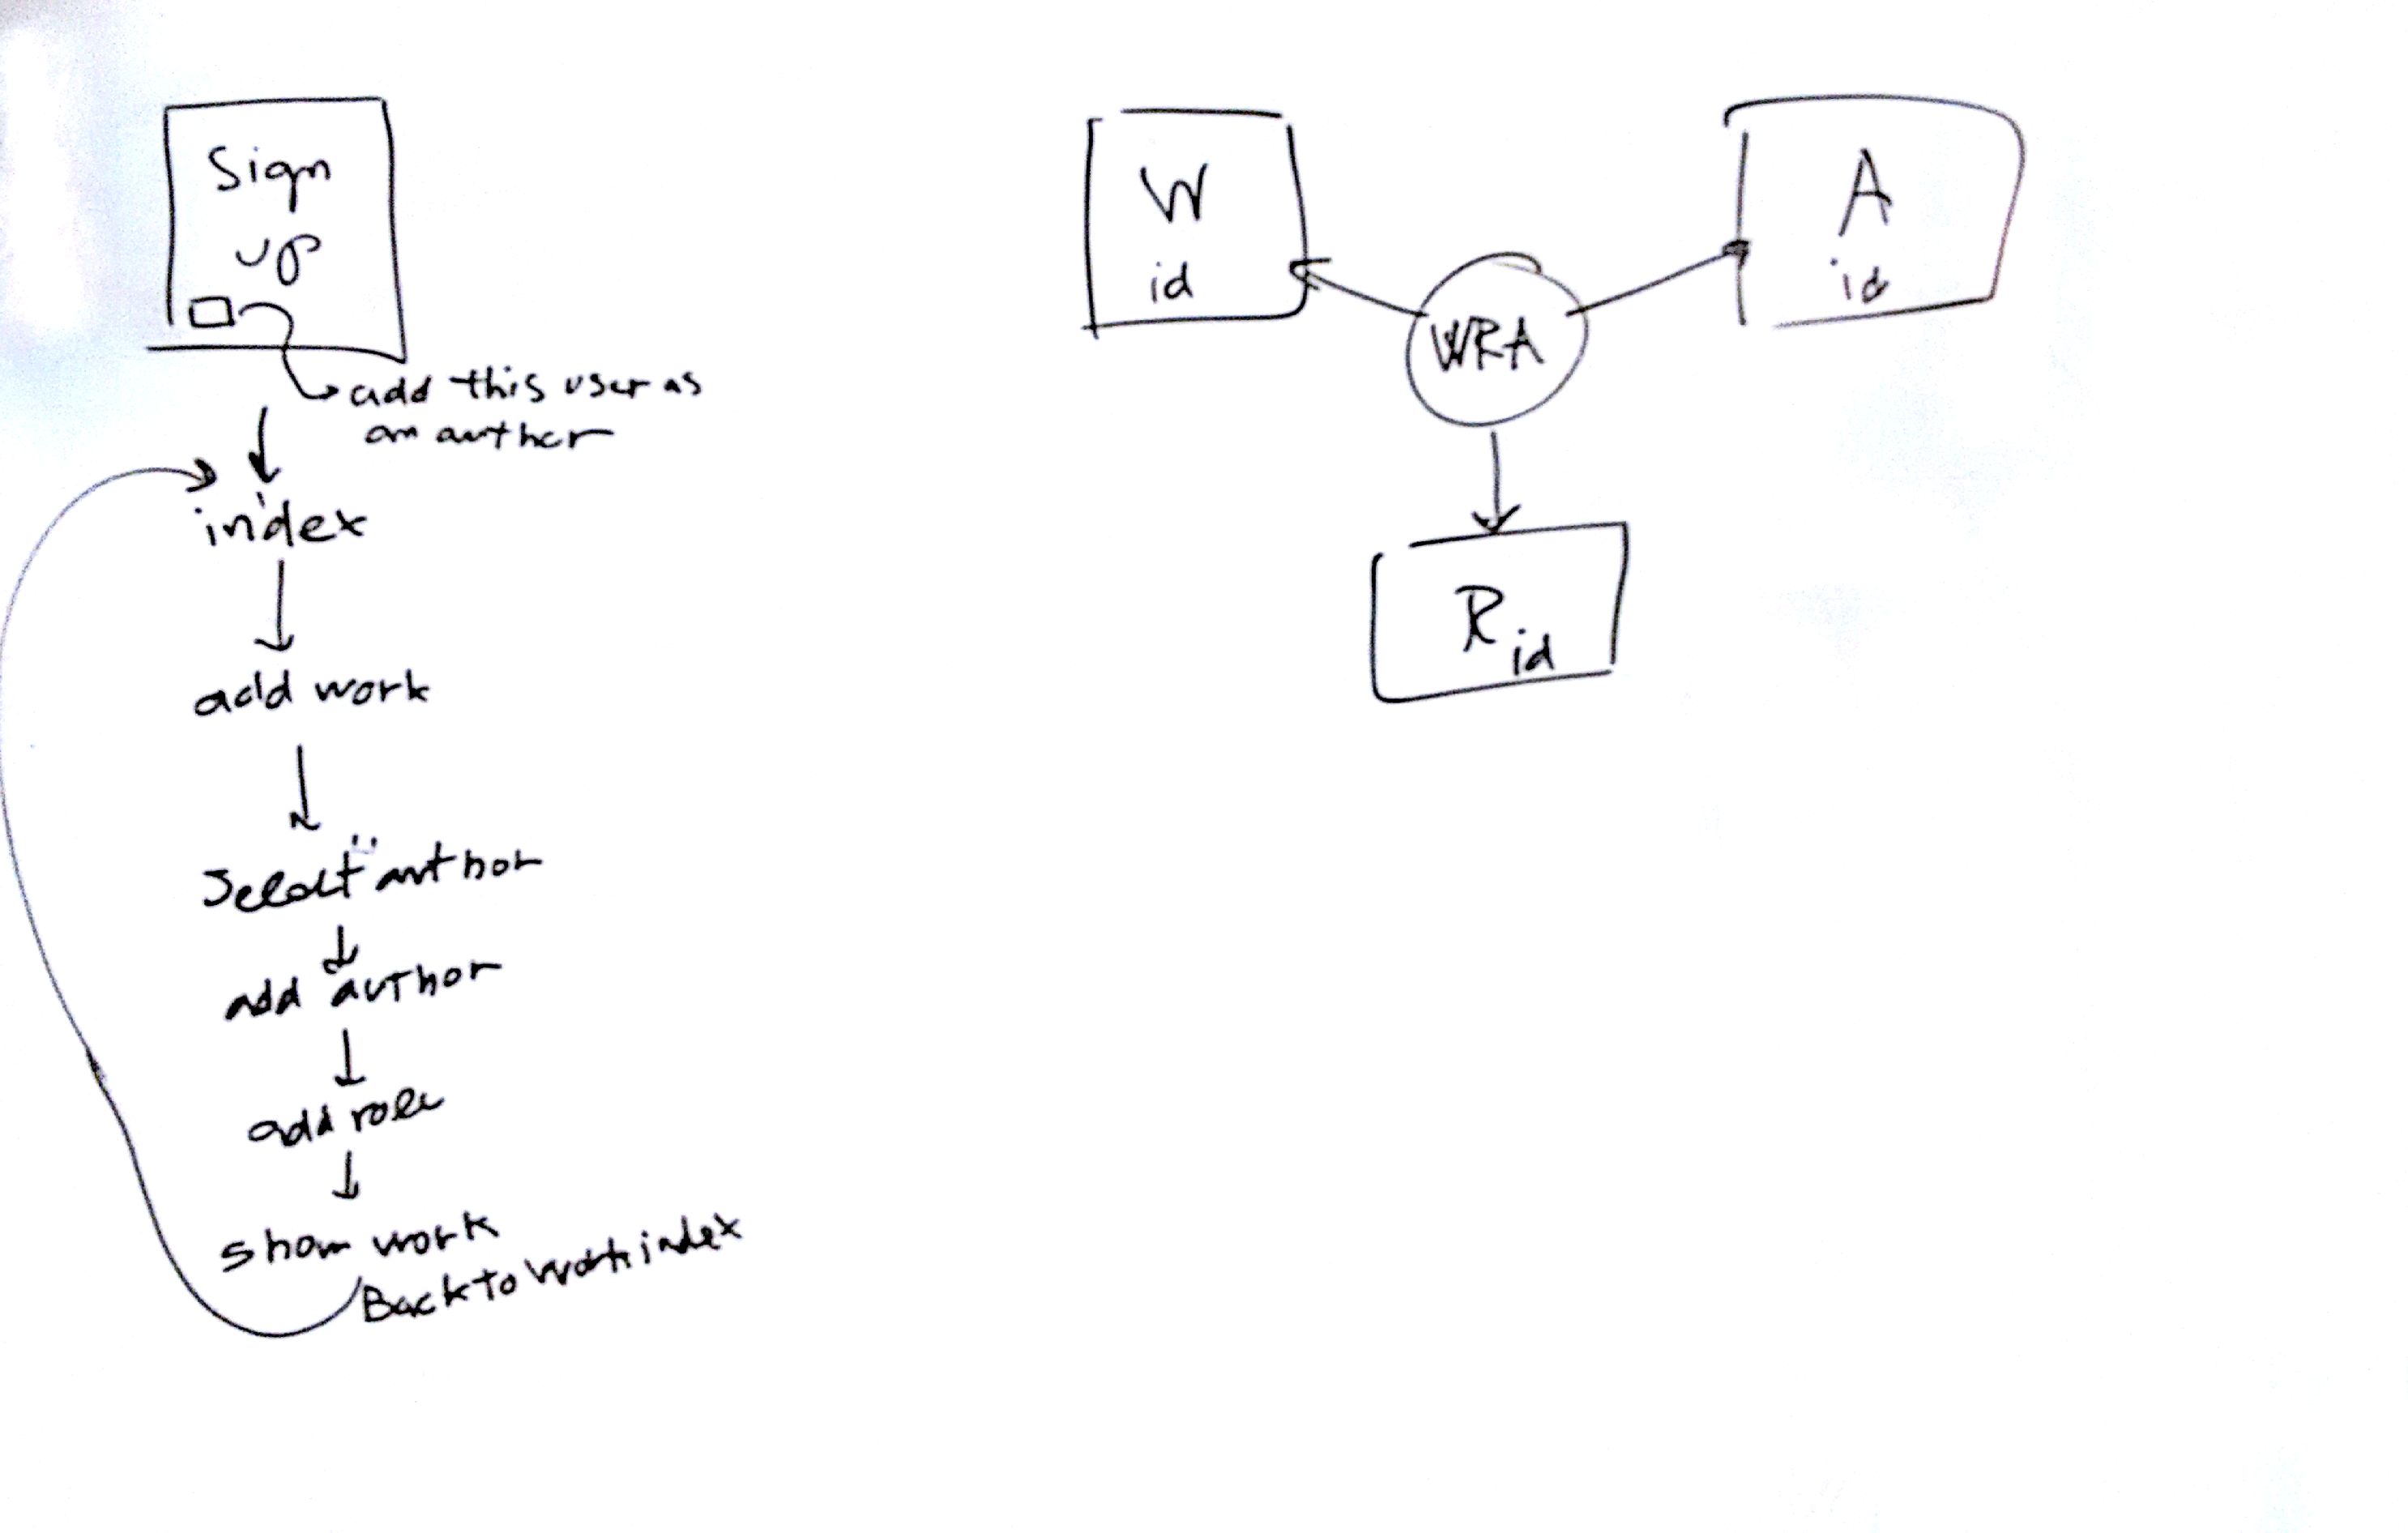 Sign
up
add this user as
an author
index
add work
Select "author
add author
add role
Show work
Back to work index
W
id
A
id
WRA
R
id